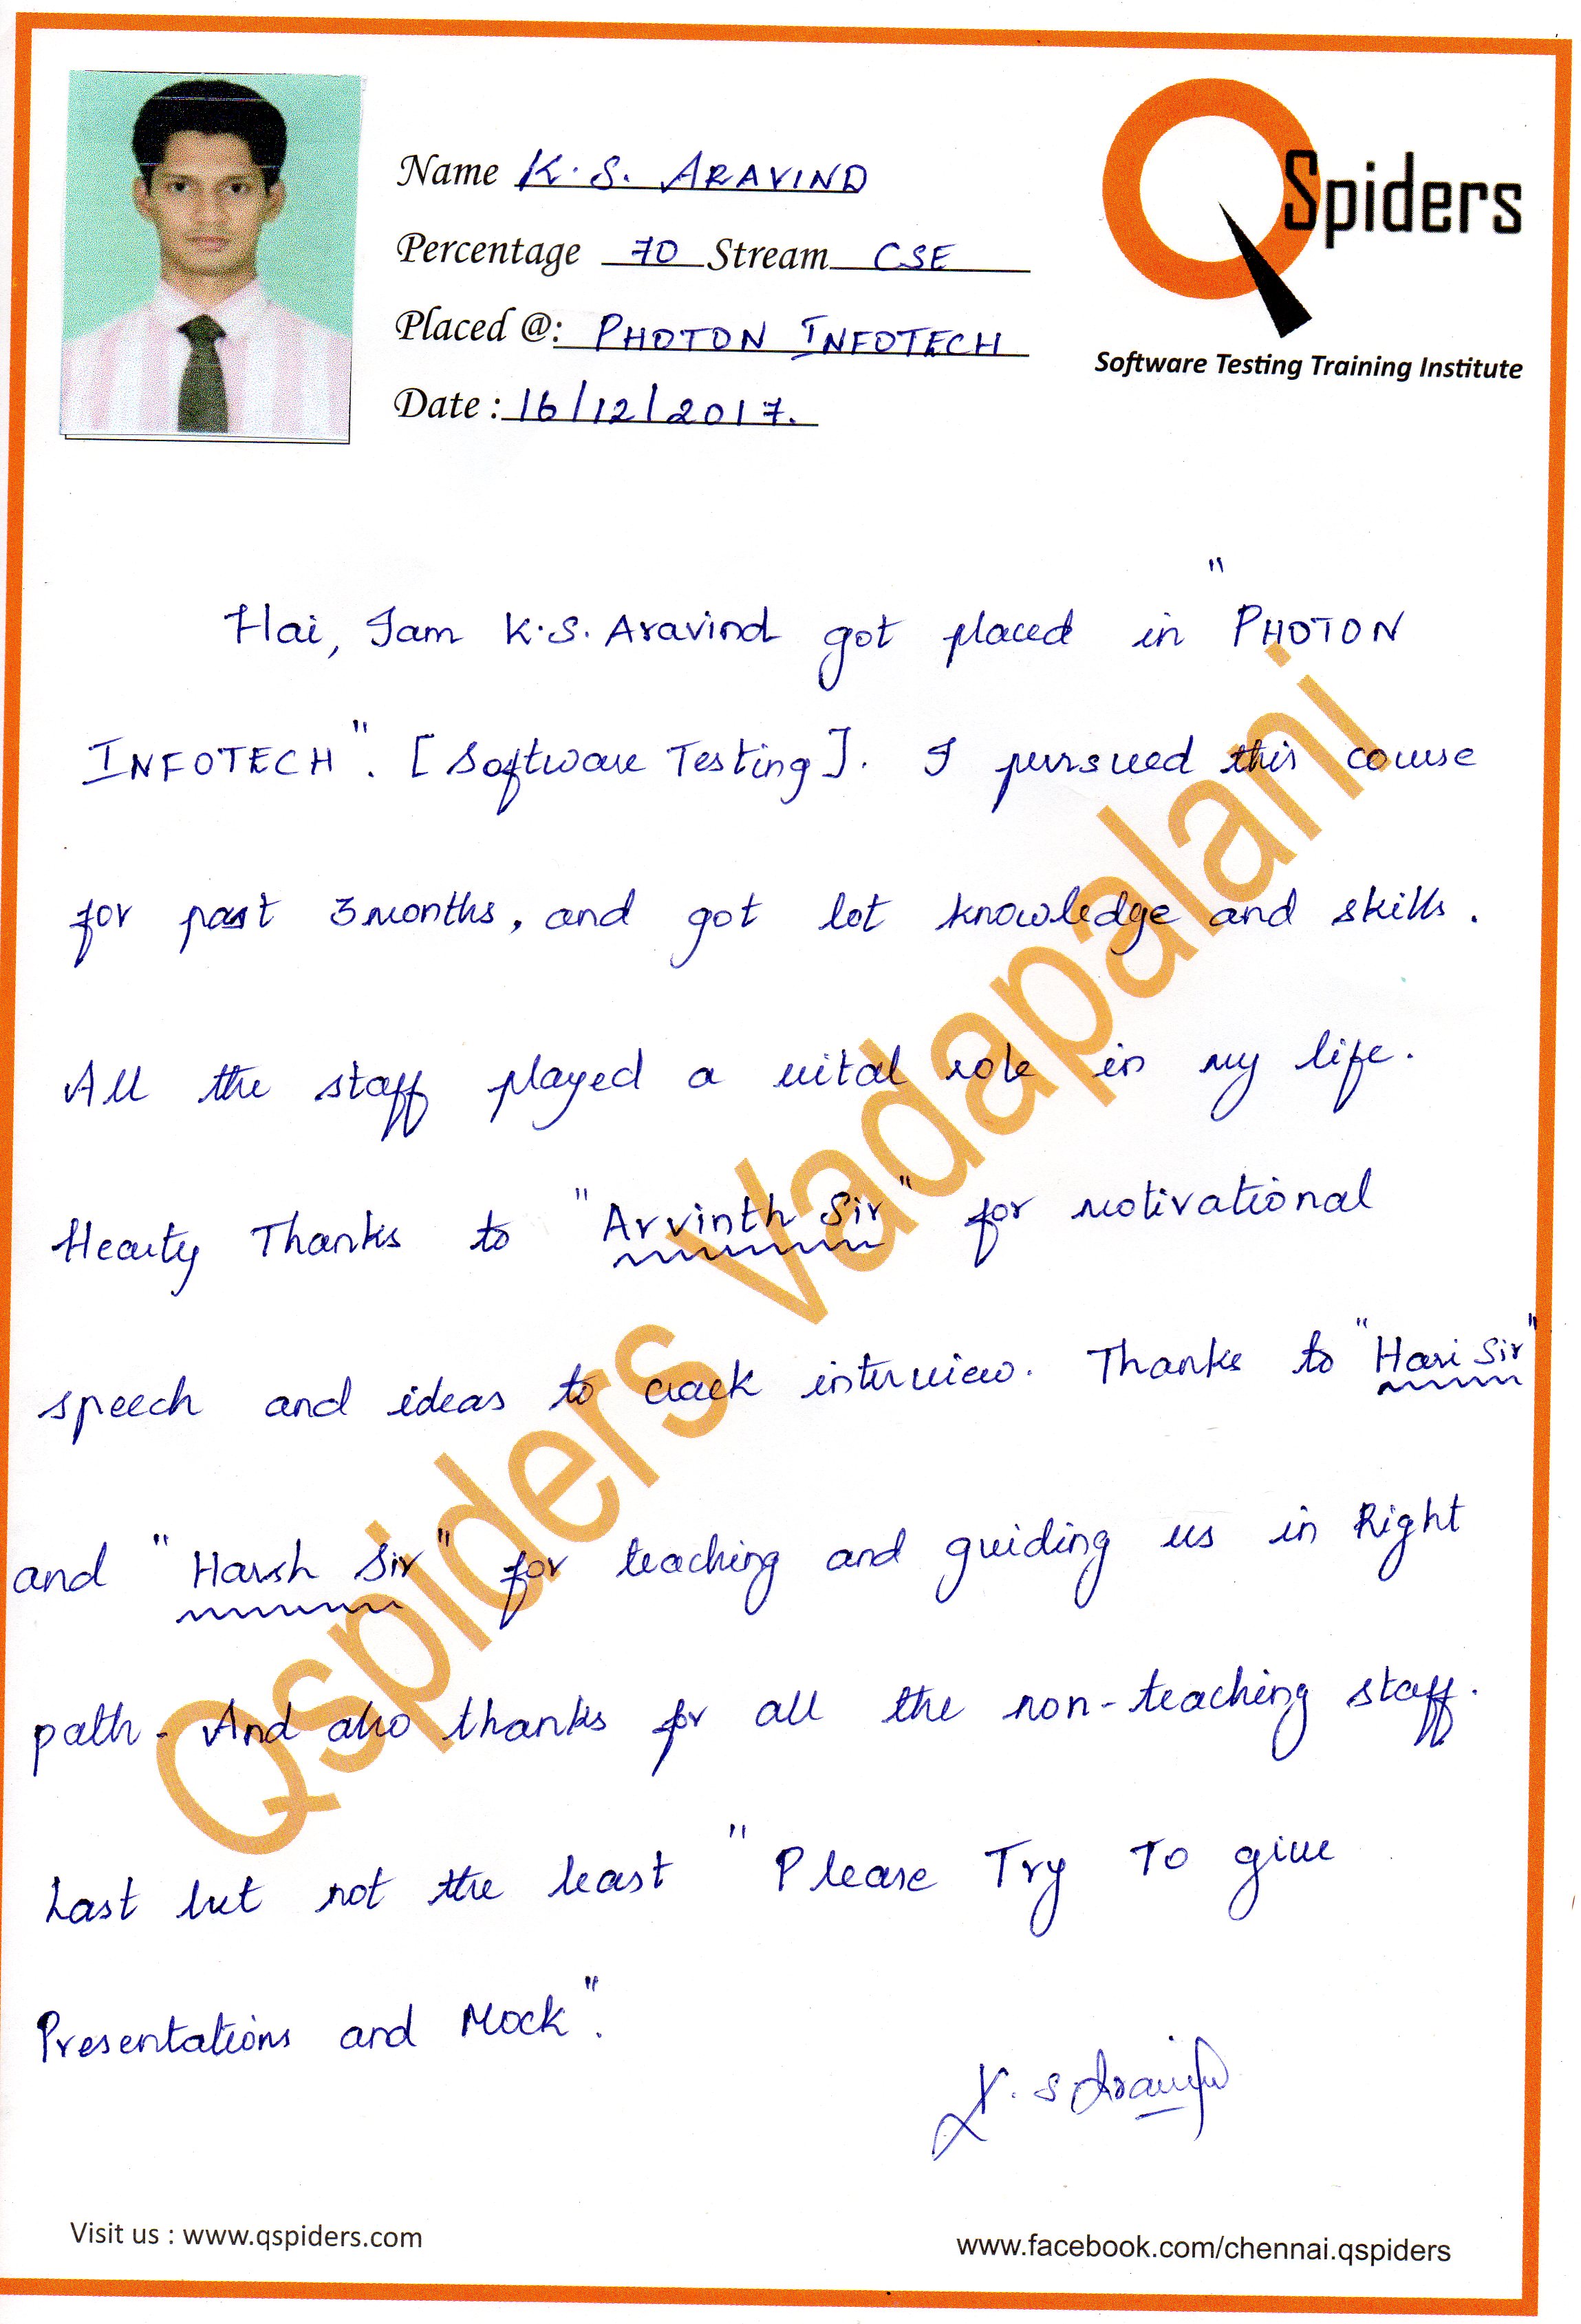 Name K.S. ARAVIND
Percentage 70 Stream CSE
Placed @: PHOTON INFOTECH
Date : 16/12/2017.
QSpiders
Software Testing Training Institute
Hai, Iam K.S. Aravind got placed in "PHOTON
INFOTECH". [Software Testing]. I pursued this course
for past 3months, and got lot knowledge and skills.
All the staff played a vital role in my life.
Hearty Thanks to "Arvinth Sir" for motivational
speech and ideas to crack interview. Thanks to "Hari Sir"
and "Harsh Sir" for teaching and guiding us in Right
path. And also thanks for all the non-teaching staff.
Last but not the least "Please Try To give
Presentations and Mock".
K.S Aravind
Qspiders Vadapalani
Visit us : www.qspiders.com
www.facebook.com/chennai.qspiders